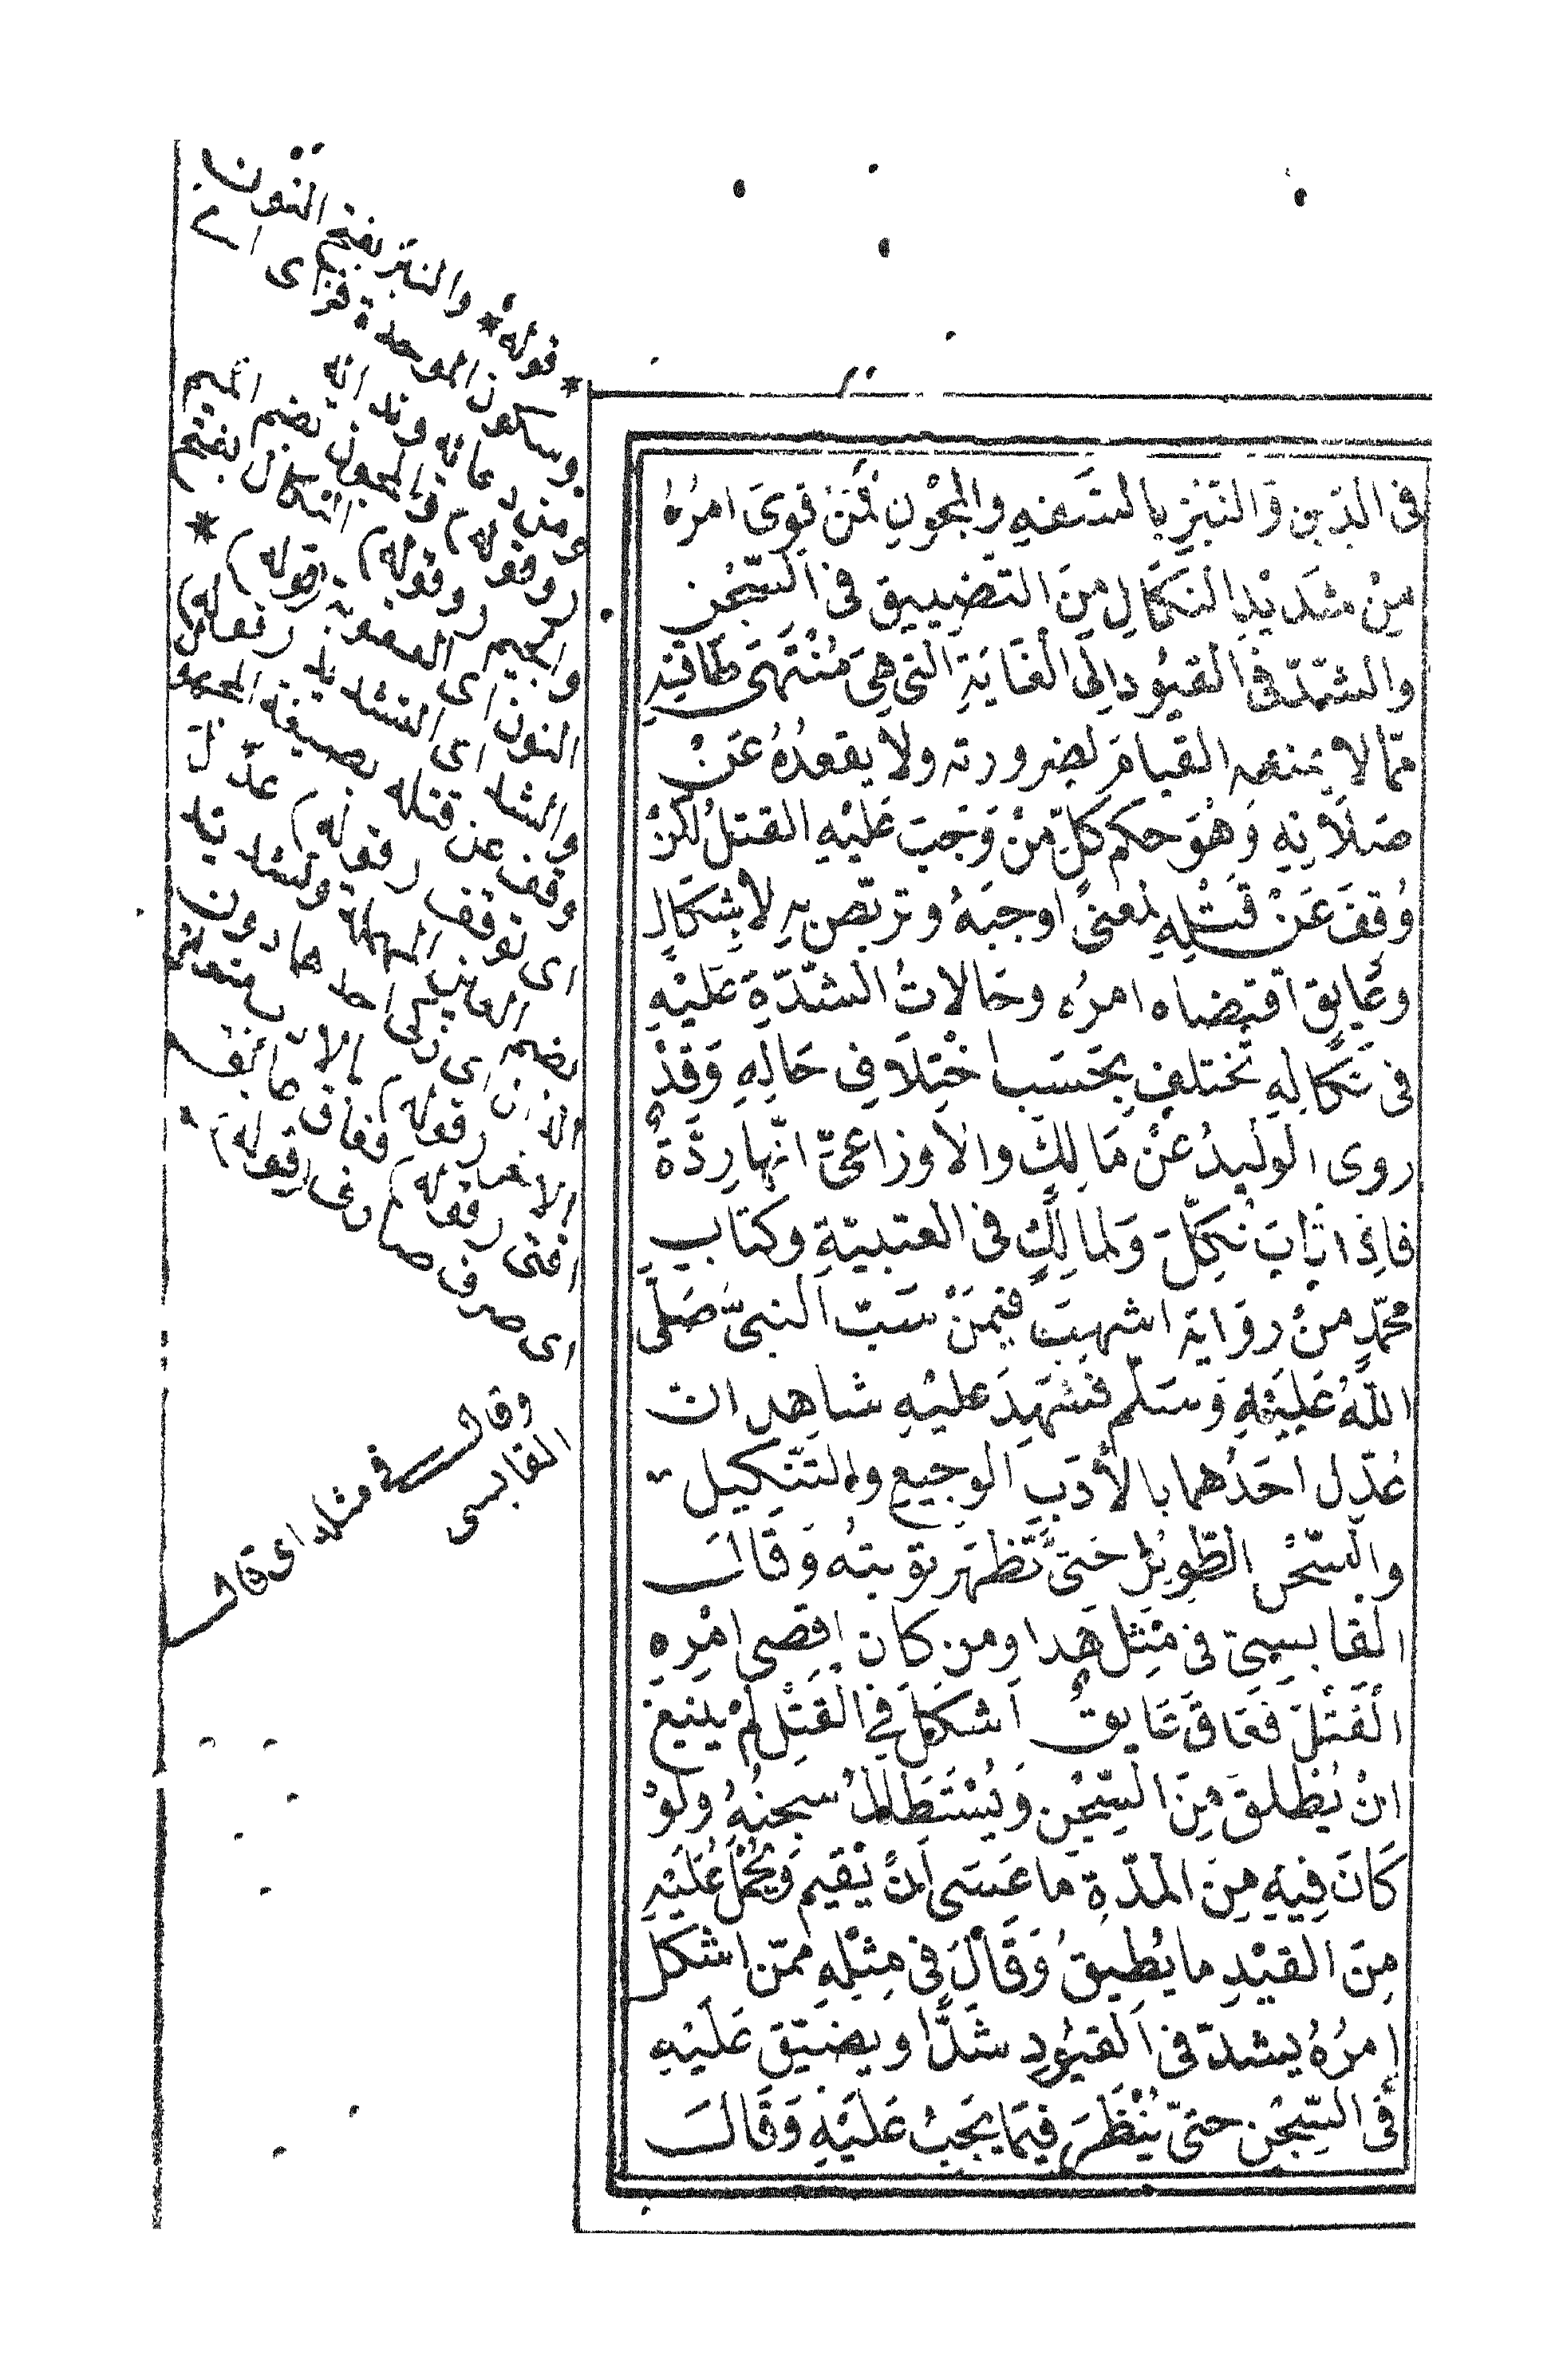 فى الدّين وَالنّبْزِ بالسَّفهِ والمجُوْنِ فمَنْ قوِىَ امرُهُ
مِنْ شَديْدِ النَكَالِ مِنَ التضْييقِ فى السّجْنِ
والشدّ فى القيُود اِلَى الغَايَةِ التى هِىَ مُنْتَهَى طَاقَتِهِ
ممّا لا يمنعه القيامَ لضرورته ولاَ يقعدُهُ عَنْ
صَلاَتِهِ وَهُوَ حكم كلّ مَنْ وَجَبَ عَليْهِ القتلُ لكنْ
وُقِفَ عَنْ قَتْلِهِ لمعنىً اوجبَهُ وتربّص بهِ لاِشكَالٍ
وعَايِقٍ اقتضاه امرُه وحَالاتُ الشدّةِ عَليْهِ
فى نكالِهِ تختلف بحَسَب اخْتِلاَفِ حَالِهِ وَقَدْ
روى الوَليدُ عَنْ مَالِكٍ والاوزاعىّ انّها ردَّةٌ
فاِذا تابَ نُكِّلَ وَلمالِكٍ فى العتبيّةِ وكتاب
محمّدٍ منْ رِوَايَة اشهبَ فيمَنْ سَبّ النبىَّ صَلَّى
اللّهُ عَليْهِ وَسَلّم فَشهِدَ عليْهِ شاهِدان
عُدّل احَدُهما بالأدَبِ الوجيعِ والتنْكيل
والسّجْنِ الطّويْلِ حَتىَّ تظهرَ توبتُهُ وَقَالَ
القابسِىّ فى مِثلِ هَذا ومن كان اقصى امْرِهِ
القَتْلَ فعَاقَ عَايقٌ اَشكلَ فى القَتْلِ لمْ ينبغ
انْ يُطْلَقَ مِنَ السّجْنِ وَيُسْتَطَالُ سجنُهُ ولوْ
كَانَ فِيهِ مِنَ المدّةِ ما عَسَى اَنْ يُقيم وَيُحْمَلُ عَليْهِ
مِنَ القيْدِ ما يُطيقُ وَقَالَ فى مِثلِهِ ممّن اشكل
امرُهُ يشدّ فى القيُودِ شدًّا ويضيّق عَليْهِ
فى السّجْنِ حتىّ يُنْظَرَ فيمَا يَجبُ عَليْهِ وَقَالَ
* قوله * والنبز بفتح النون
وسكون الموحدة فزاى اى
(وقوله) والمجون بضم الميم
والجيم (وقوله) النكال بفتح
النون اى العقوبة (قوله) *
والشد اى التشديد (قوله)
وقف عن قتله بصيغة المجهول
اى توقف (قوله) عدّل
بضم العين المهملة وتشديد
الاخر (قوله) فعاق عائق
اى صرف صارف (قوله)
وقال فى مثله اى قال
القابسى